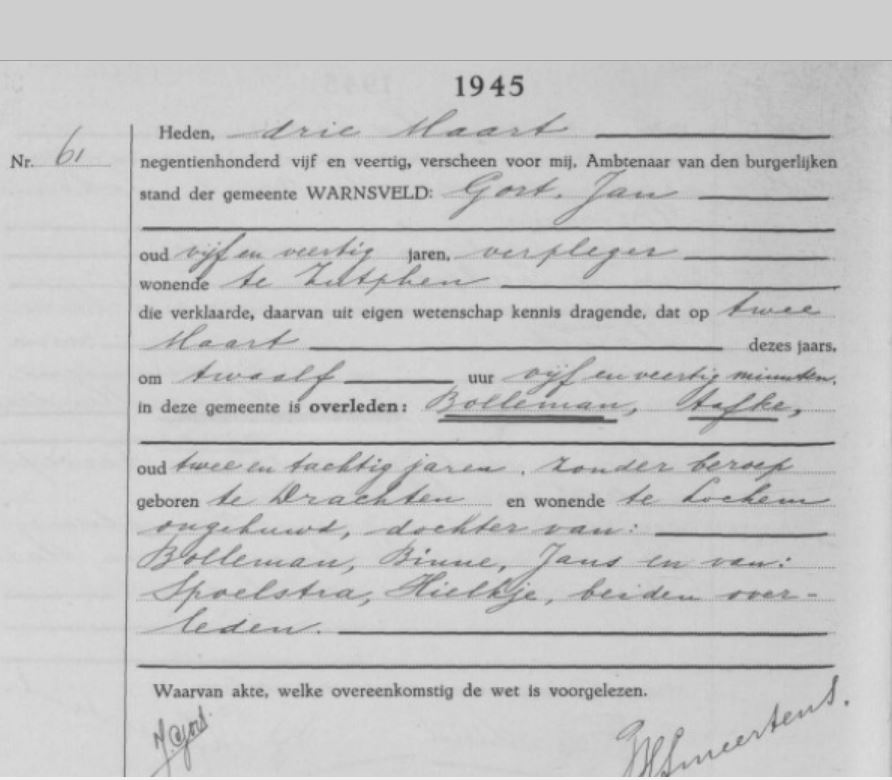 1945
Heden, drie Maart
Nr. 61
negentienhonderd vijf en veertig, verscheen voor mij, Ambtenaar van den burgerlijken
stand der gemeente WARNSVELD: Gort, Jan
oud vijf en veertig jaren, verpleger
wonende te Zutphen
die verklaarde, daarvan uit eigen wetenschap kennis dragende, dat op twee
Maart dezes jaars,
om twaalf uur vijf en veertig minuten,
in deze gemeente is overleden: Bolleman, Aafke,
oud twee en tachtig jaren, zonder beroep
geboren te Drachten en wonende te Lochem
ongehuwd, dochter van:
Bolleman, Binne, Jans en van:
Spoelstra, Hieltje, beiden over-
leden.
Waarvan akte, welke overeenkomstig de wet is voorgelezen.
J Gort.
Smeertens.